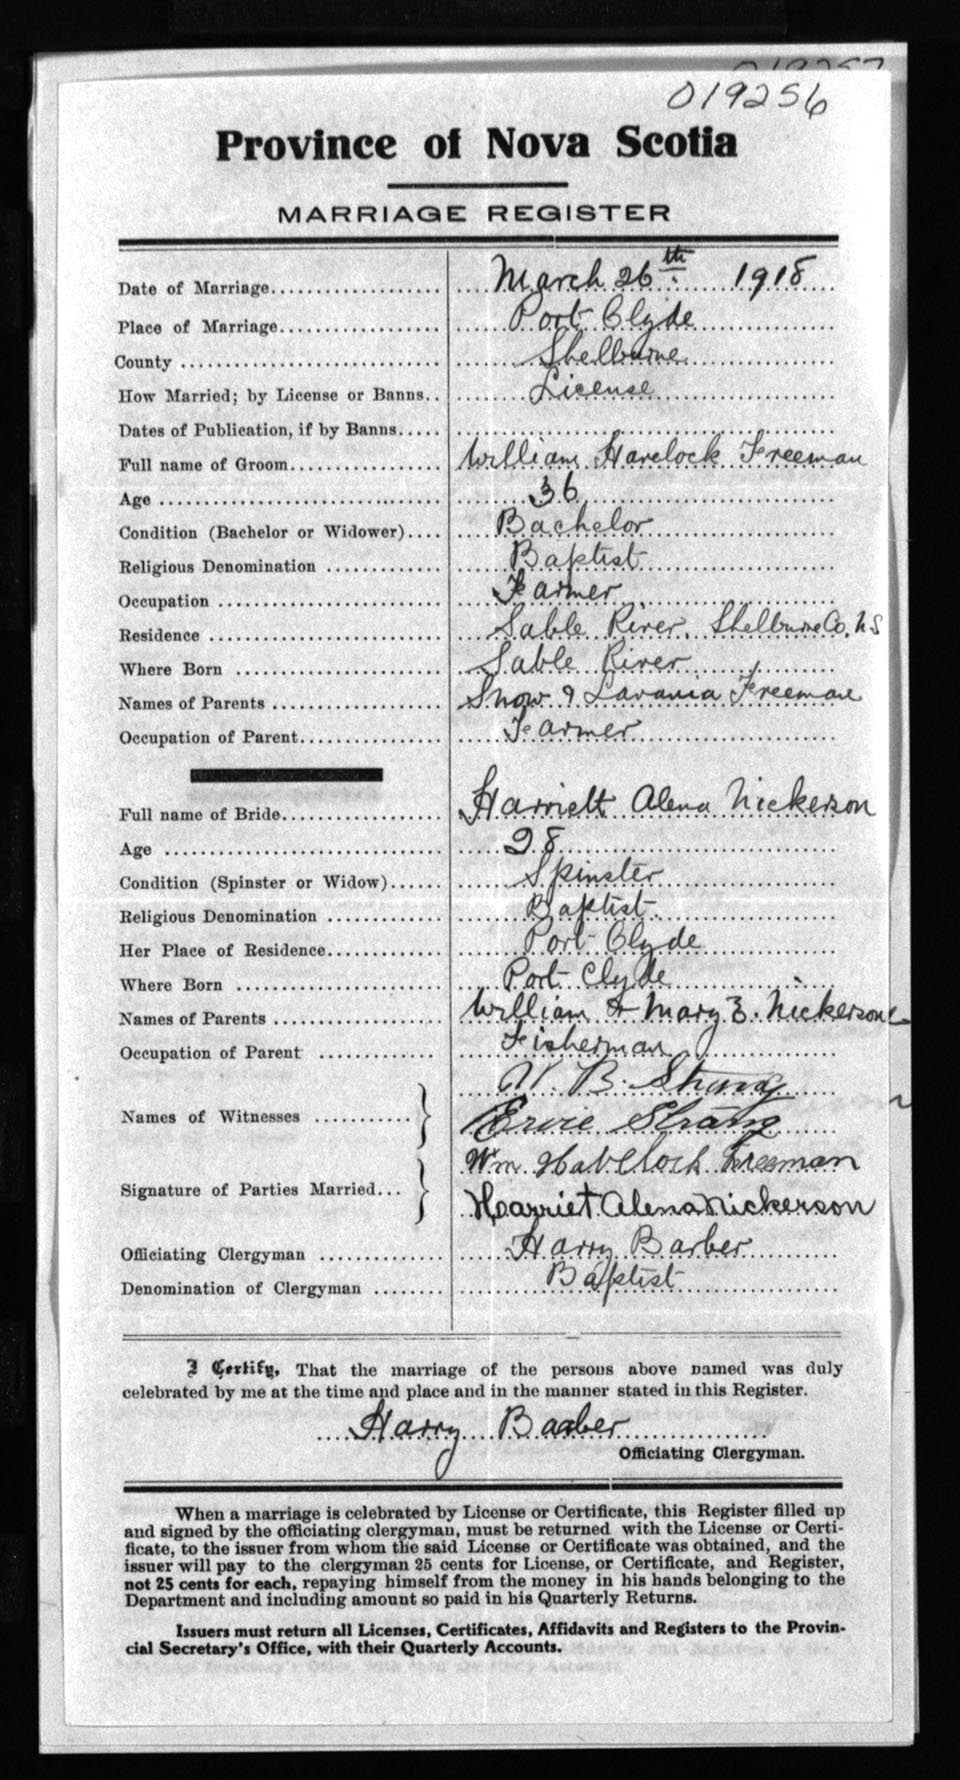 019257
019256
Province of Nova Scotia
MARRIAGE REGISTER
Date of Marriage.................... March 26th. 1918
Place of Marriage................. Port Clyde
County ............................ Shelburne
How Married; by License or Banns.. License
Dates of Publication, if by Banns.....
Full name of Groom.................. William Havelock Freeman
Age .............................. 36
Condition (Bachelor or Widower).... Bachelor
Religious Denomination ............. Baptist
Occupation ........................ Farmer
Residence ......................... Sable River, Shelburne Co. N S
Where Born ....................... Sable River
Names of Parents ................... Snow & Lavania Freeman
Occupation of Parent................ Farmer
Full name of Bride.................. Harriett Alena Nickerson
Age .............................. 28
Condition (Spinster or Widow)...... Spinster
Religious Denomination ............. Baptist
Her Place of Residence.............. Port Clyde
Where Born ....................... Port Clyde
Names of Parents ................... William & Mary E. Nickerson
Occupation of Parent .............. Fisherman
W. B. Strang
Names of Witnesses ...........
Ervie Strang
Wm Havelock Freeman
Signature of Parties Married...
Harriet Alena Nickerson
Officiating Clergyman .............. Harry Barber
Denomination of Clergyman ........ Baptist
I Certify, That the marriage of the persons above named was duly
celebrated by me at the time and place and in the manner stated in this Register.
Harry Barber
Officiating Clergyman.
When a marriage is celebrated by License or Certificate, this Register filled up
and signed by the officiating clergyman, must be returned with the License or Certi-
ficate, to the issuer from whom the said License or Certificate was obtained, and the
issuer will pay to the clergyman 25 cents for License, or Certificate, and Register,
not 25 cents for each, repaying himself from the money in his hands belonging to the
Department and including amount so paid in his Quarterly Returns.
Issuers must return all Licenses, Certificates, Affidavits and Registers to the Provin-
cial Secretary's Office, with their Quarterly Accounts.